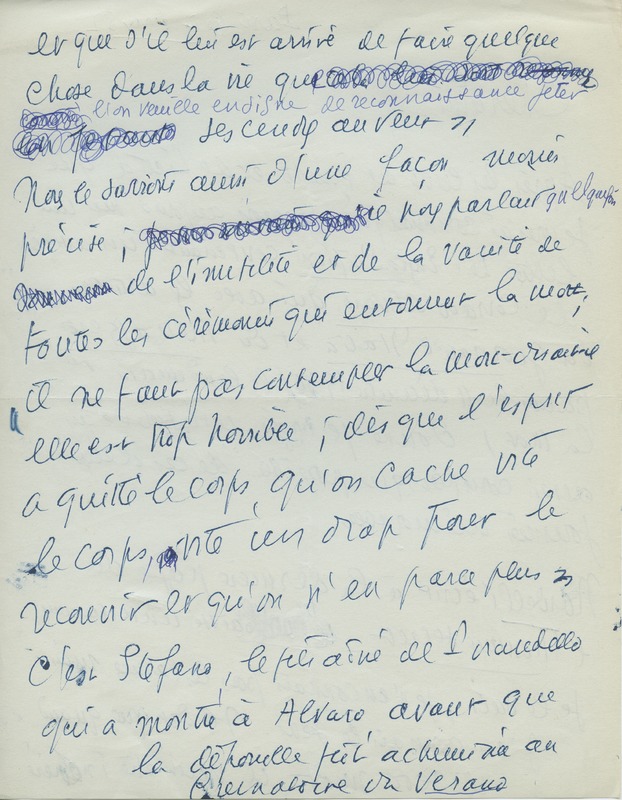 et que s'il lui est arrivé de faire quelque
chose dans la vie que
l'on veuille en signe de reconnaissance jeter
ses cendres au vent »
Nous le savions aussi d'une façon moins
précise ; il nous parlait quelquefois
de l'inutilité et de la vanité de
toutes les cérémonies qui entourent la mort ;
il ne faut pas contempler la mort disait-il
elle est trop horrible ; dès que l'esprit
a quitté le corps, qu'on cache vite
le corps, vite un drap pour le
recouvrir et qu'on n'en parle plus »
C'est Stefano, le fils aîné de Pirandello
qui a montré à Alvaro avant que
la dépouille fût acheminée au
Crématoire du Verano